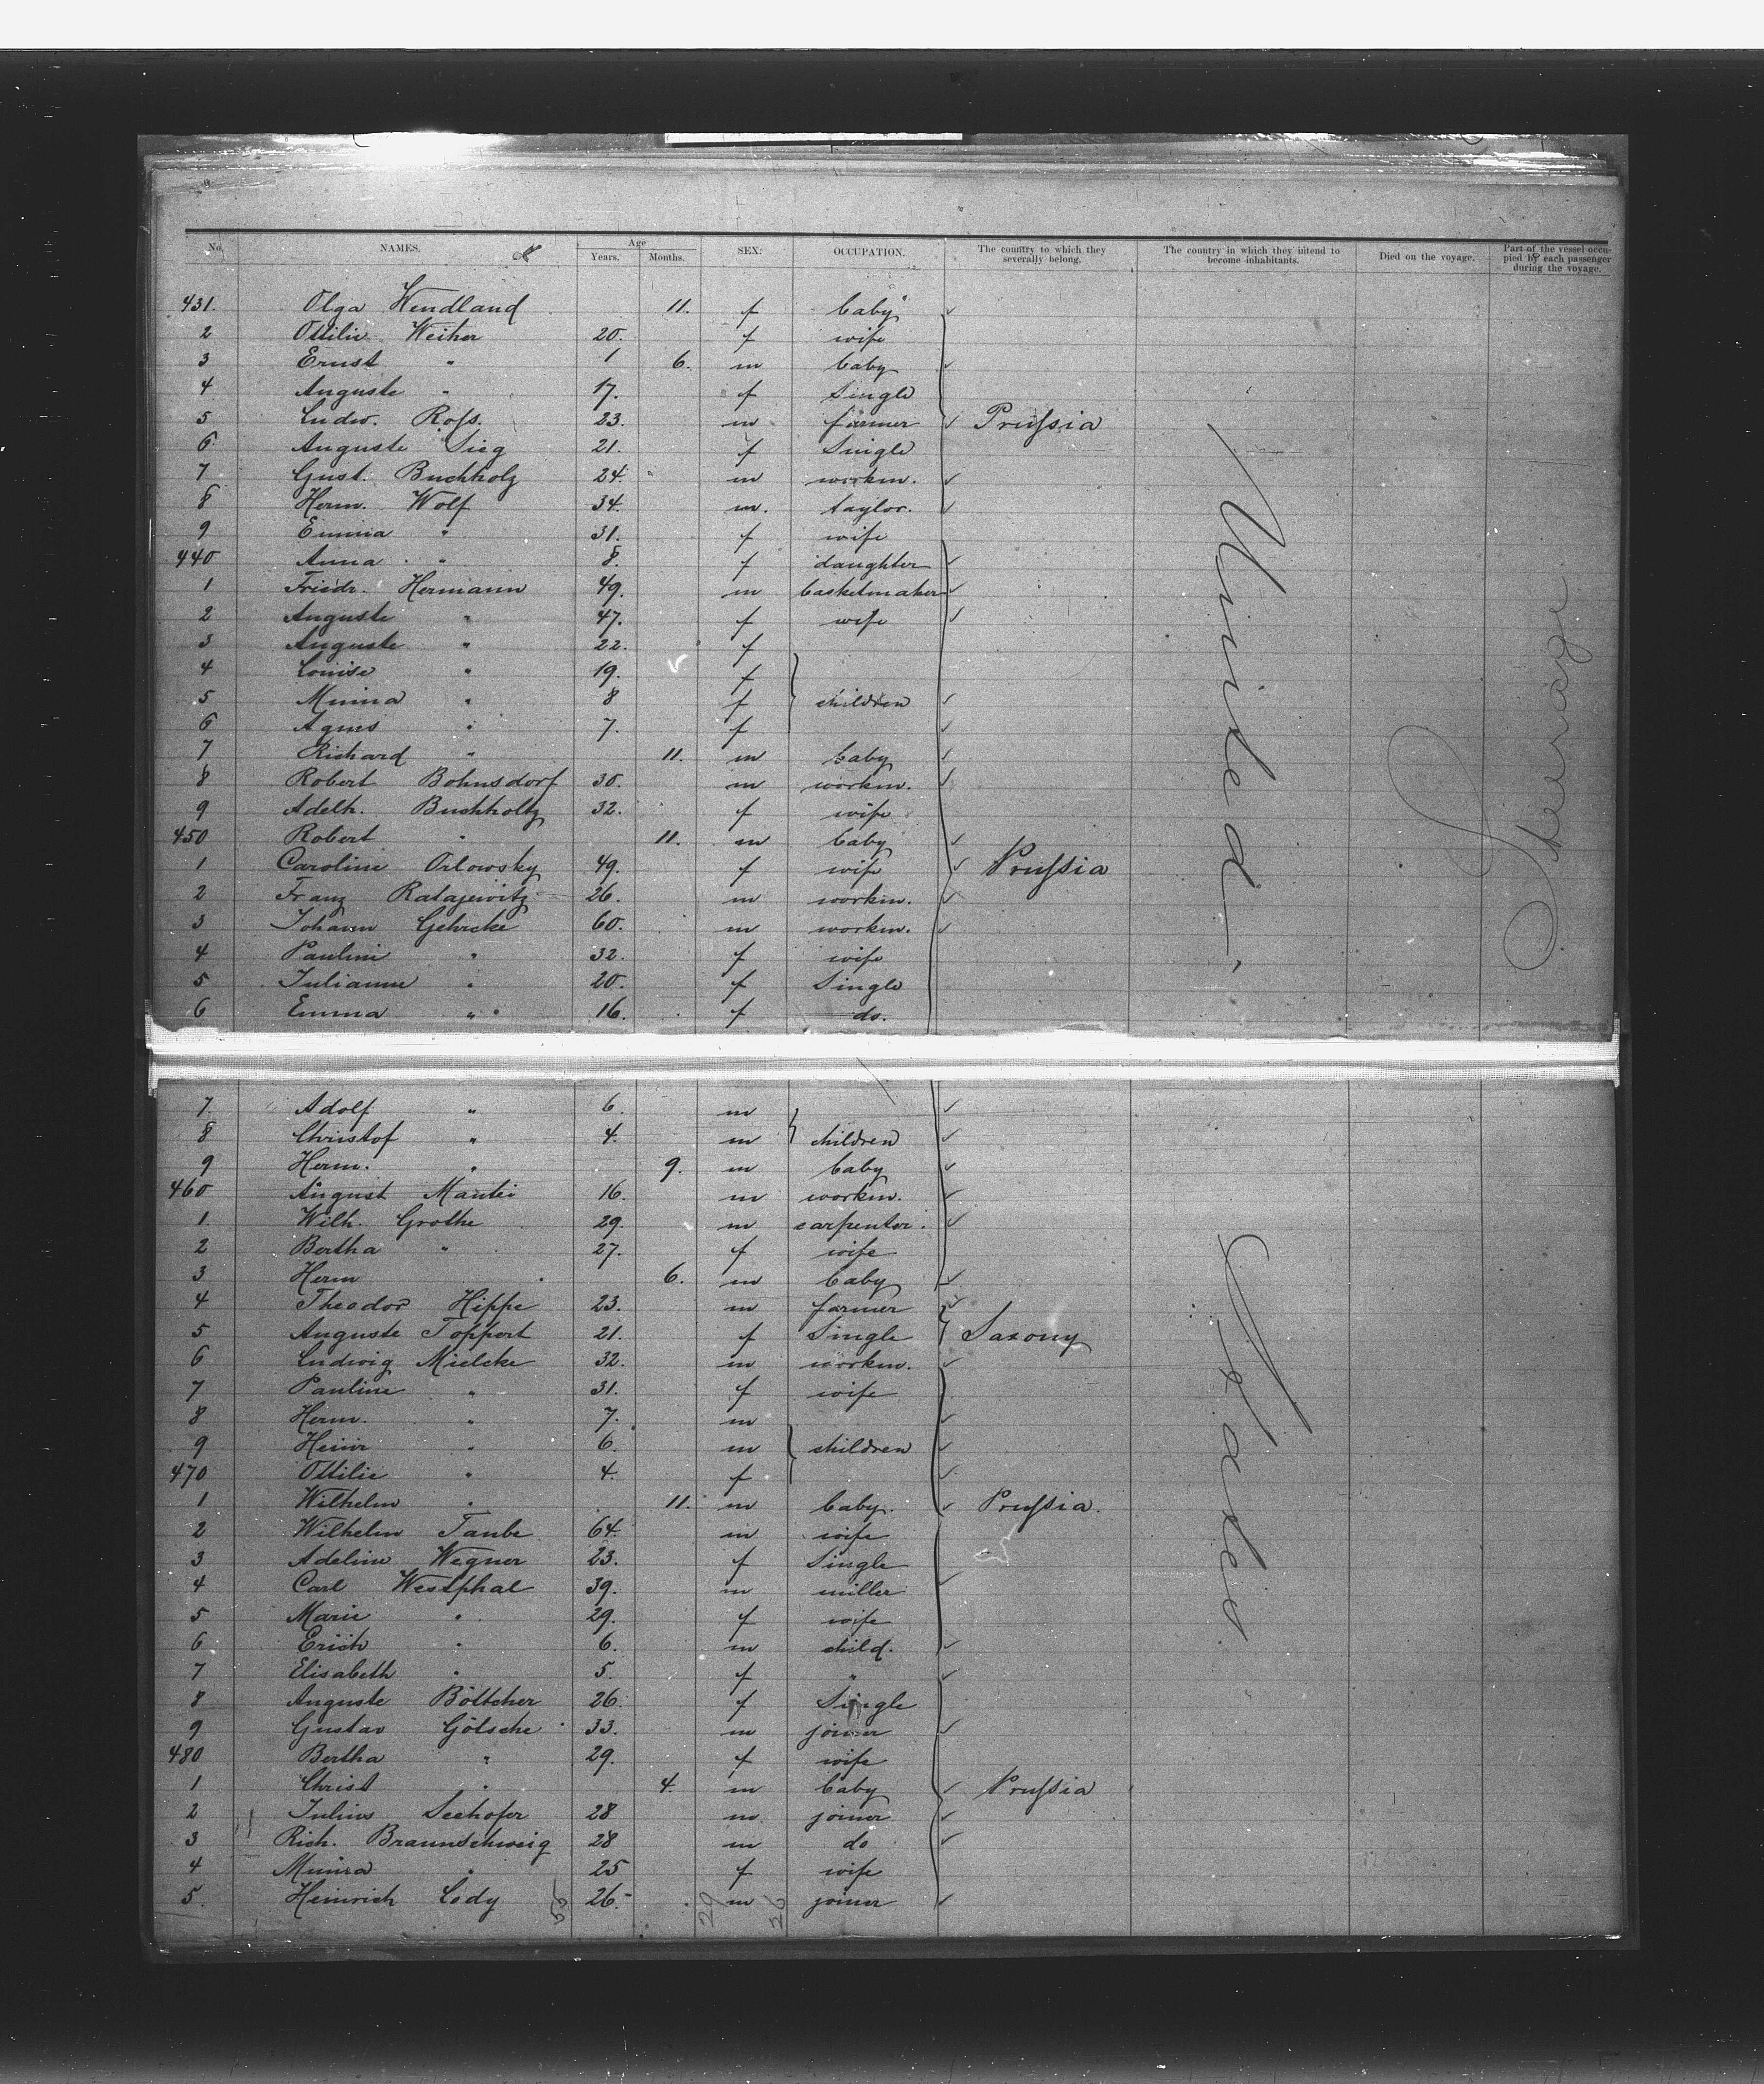 No. NAMES. Age Years. Months. SEX: OCCUPATION. The country to which they severally belong. The country in which they intend to become inhabitants. Died on the voyage. Part of the vessel occupied by each passenger during the voyage.
431. Olga Wendland 11. f baby
2 Ottilie Weiher 20. f wife
3 Ernst " 1 6. m baby
4 Auguste " 17. f Single
5 Ludw. Roſs. 23. m farmer Pruſsia
6 Auguste Sieg 21. f Single
7 Gust. Buchholz 24. m workm.
8 Herm. Wolf 34. m. taylor.
9 Emma " 31. f wife
440 Anna " 8. f daughter
1 Friedr. Hermann 49. m basketmaker
2 Auguste " 47. f wife
3 Auguste " 22. f
4 Louise " 19. f
5 Minna " 8 f children
6 Agnes " 7. f
7 Richard " 11. m baby
8 Robert Bohnsdorf 30. m workm.
9 Adelh. Buchholtz 32. f wife
450 Robert " 11. m baby
1 Caroline Orlowsky 49. f wife Pruſsia
2 Franz Ratajewitz 26. m workm.
3 Johann Gehrcke 60. m workm.
4 Pauline " 32. f wife
5 Julianne " 20. f Single
6 Emma " 16. f do.
United
Steerage
7. Adolf " 6. m
8 Christof " 4. m children
9 Herm. " 9. m baby
460 August Mantei 16. m workm.
1. Wilh. Grothe 29. m carpenter.
2 Bertha " 27. f wife
3 Herm 6. m baby
4 Theodor Hippe 23. m farmer
5 Auguste Toppert 21. f Single Saxony
6 Ludwig Mielcke 32. m workm.
7 Pauline " 31. f wife
8 Herm. " 7. m
9 Heinr " 6. m children
470 Ottilie " 4. f
1 Wilhelm " 11. m baby. Pruſsia.
2 Wilhelm Taube 64. m wife
3 Adeline Wegner 23. f Single
4 Carl Westphal 39. m miller
5 Marie " 29. f wife
6 Erich " 6. m child.
7 Elisabeth " 5. f "
8 Auguste Böttcher 26. f Single
9 Gustav Götsche 33. m joiner
480 Bertha " 29. f wife
1 Christ " 4. m baby Pruſsia
2 Julius Seehofer 28 m. joiner
3 Rich. Braunschweig 28 m do
4 Minna " 25 f wife
5. Heinrich Cody 26 m joiner
States
55 29 26